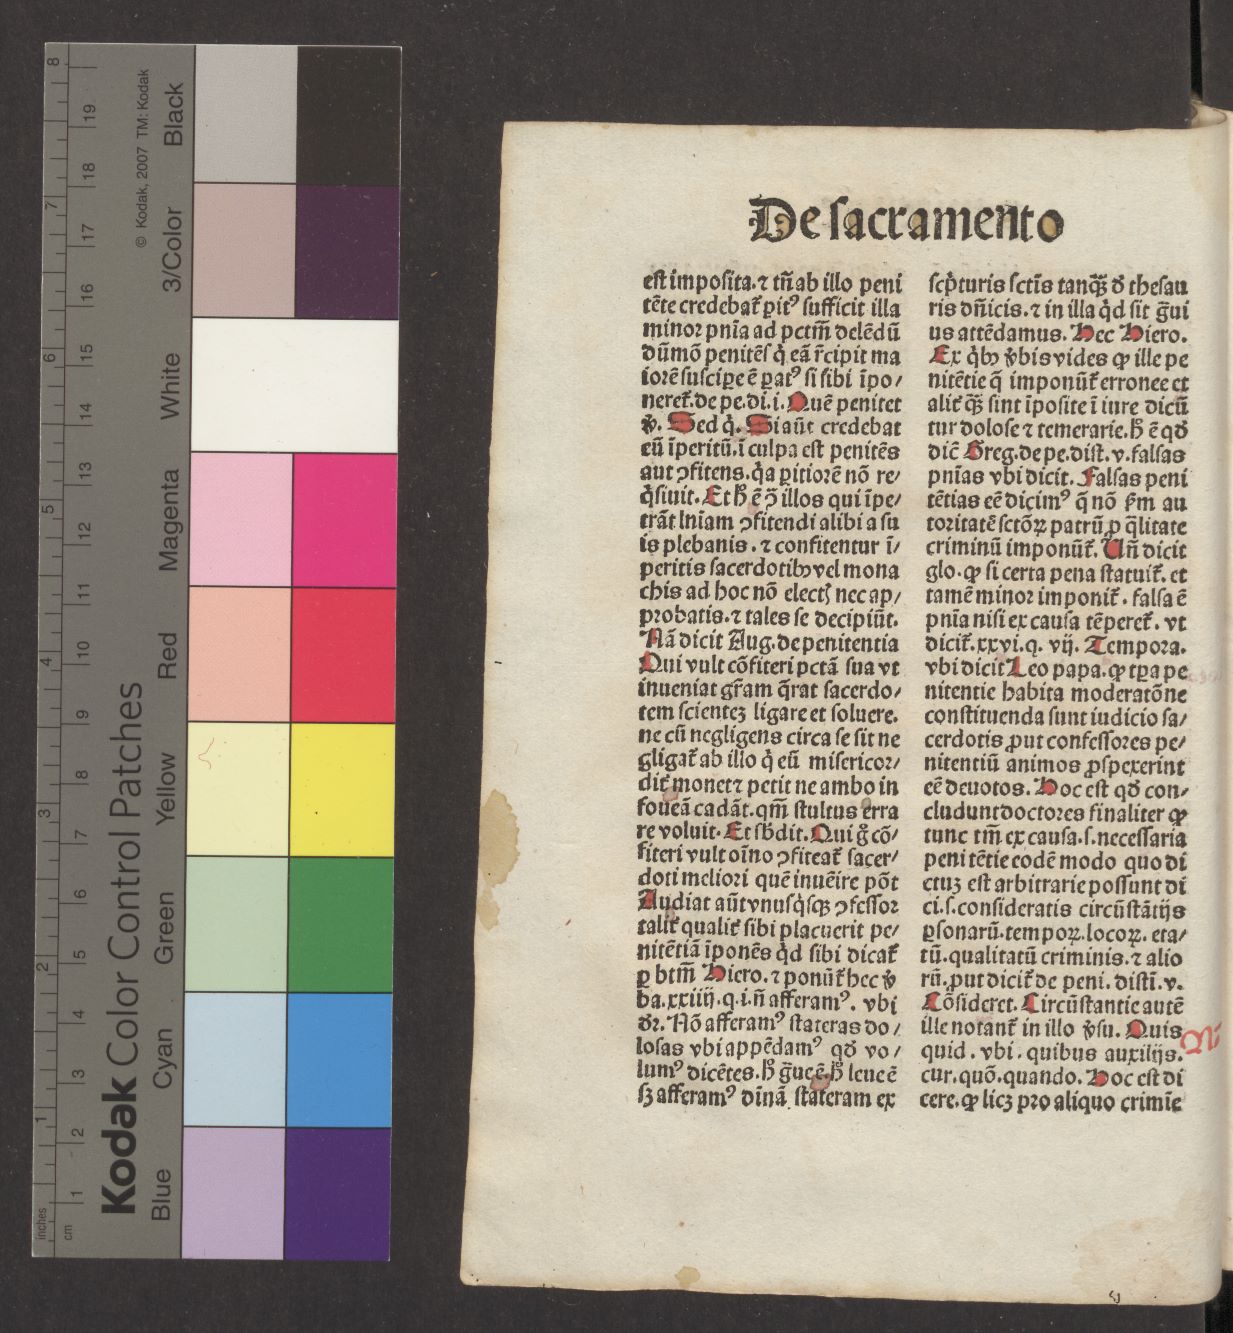 Kodak Color Control Patches
© Kodak, 2007 TM: Kodak
Blue Cyan Green Yellow Red Magenta White 3/Color Black
inches 1 2 3 4 5 6 7 8
cm 1 2 3 4 5 6 7 8 9 10 11 12 13 14 15 16 17 18 19
De sacramento
est imposita. ⁊ tñ ab illo peni
tẽte credebat̃ ꝑitꝰ sufficit illa
minor pnĩa ad pctm̃ delẽdũ
dũmõ penitẽs q̇ eã r̃cipit ma
iorẽ suscipe ẽ ꝑatꝰ si sibi ĩpo/
neret̃. de pe. di. i. Quẽ penitet
ꝟ. Sed q̇. Si aũt credebat
eũ ĩperitũ. ĩ culpa est penitẽs
aut ꝯfitens. q̇a ꝑitiorẽ nõ re/
q̇siuit. Et h̃ ẽ ꝯ̃ illos qui ĩpe/
trãt lnĩam ꝯfitendi alibi a su
is plebanis. ⁊ confitentur ĩ/
peritis sacerdotibꝫ vel mona
chis ad hoc nõ elect̃ nec ap/
probatis. ⁊ tales se decipiũt.
Nã dicit Aug. de penitentia
Qui vult cõfiteri pctã sua vt
inueniat gr̃am q̃rat sacerdo/
tem scienteꝫ ligare et soluere.
ne cũ negligens circa se sit ne
gligat̃ ab illo q̇ eũ misericor/
dit̃ monet ⁊ petit ne ambo in
foueã cadãt. qm̃ stultus erra
re voluit. Et sb̃dit. Qui g̃ cõ/
fiteri vult oĩno ꝯfiteat̃ sacer/
doti meliori quẽ inuẽire põt
Audiat aũt vnusq̇sqꝫ ꝯfessor
talit̃ qualit̃ sibi placuerit pe/
nitẽtiã ĩponẽs q̇d sibi dicat̃
ꝑ btm̃ Hiero. ⁊ ponũt̃ hec ꝟ
ba. xxiiij. q. i. ñ afferamꝰ. vbi
dr̃. Nõ afferamꝰ stateras do/
losas vbi appẽdamꝰ qđ vo/
lumꝰ dicẽtes. h̃ g̃ue ẽ. h̃ leue ẽ
sꝫ afferamꝰ dĩnã stateram ex
scp̃turis sctĩs tanq̃ꝫ đ thesau
ris dñicis. ⁊ in illa q̇d sit g̃ui
us attẽdamus. Hec Hiero.
Ex q̇bꝫ ꝟbis vides ꝙ ille pe
nitẽtie q̃ imponũt̃ erronee et
alit̃ q̃ꝫ sint ĩposite ĩ iure dicũ
tur dolose ⁊ temerarie. h̃ ẽ qđ
dic̃ Greg. de pe. dist. v. falsas
pnĩas vbi dicit. Falsas peni
tẽtias eẽ dicimꝰ q̃ nõ ẜm au
toritatẽ sctõꝝ patrũ ꝓ q̃litate
criminũ imponũt̃. Uñ dicit
glo. ꝙ si certa pena statuit̃. et
tamẽ minor imponit̃. falsa ẽ
pnĩa nisi ex causa tẽperet̃. vt
dicit̃. xxvi. q. vij. Tempora.
vbi dicit Leo papa. ꝙ tꝑa pe
nitentie habita moderatõne
constituenda sunt iudicio sa/
cerdotis ꝓut confessores pe/
nitentiũ animos ꝓspexerint
eẽ deuotos. Hoc est qđ con/
cludunt doctores finaliter ꝙ
tunc tm̃ ex causa. s. necessaria
penitẽtie eodẽ modo quo di
ctuꝫ est arbitrarie possunt di
ci. s. consideratis circũstãtijs
ꝑsonarũ. tempoꝝ. locoꝝ. eta/
tũ. qualitatũ criminis. ⁊ alio
rũ. ꝓut dicit̃ de peni. disti. v.
Cõsideret. Circũstantie autẽ
ille notant̃ in illo ꝟsu. Quis
quid. vbi. quibus auxilijs.
cur. quõ. quando. Hoc est di
cere. ꝙ licꝫ pro aliquo crimĩe